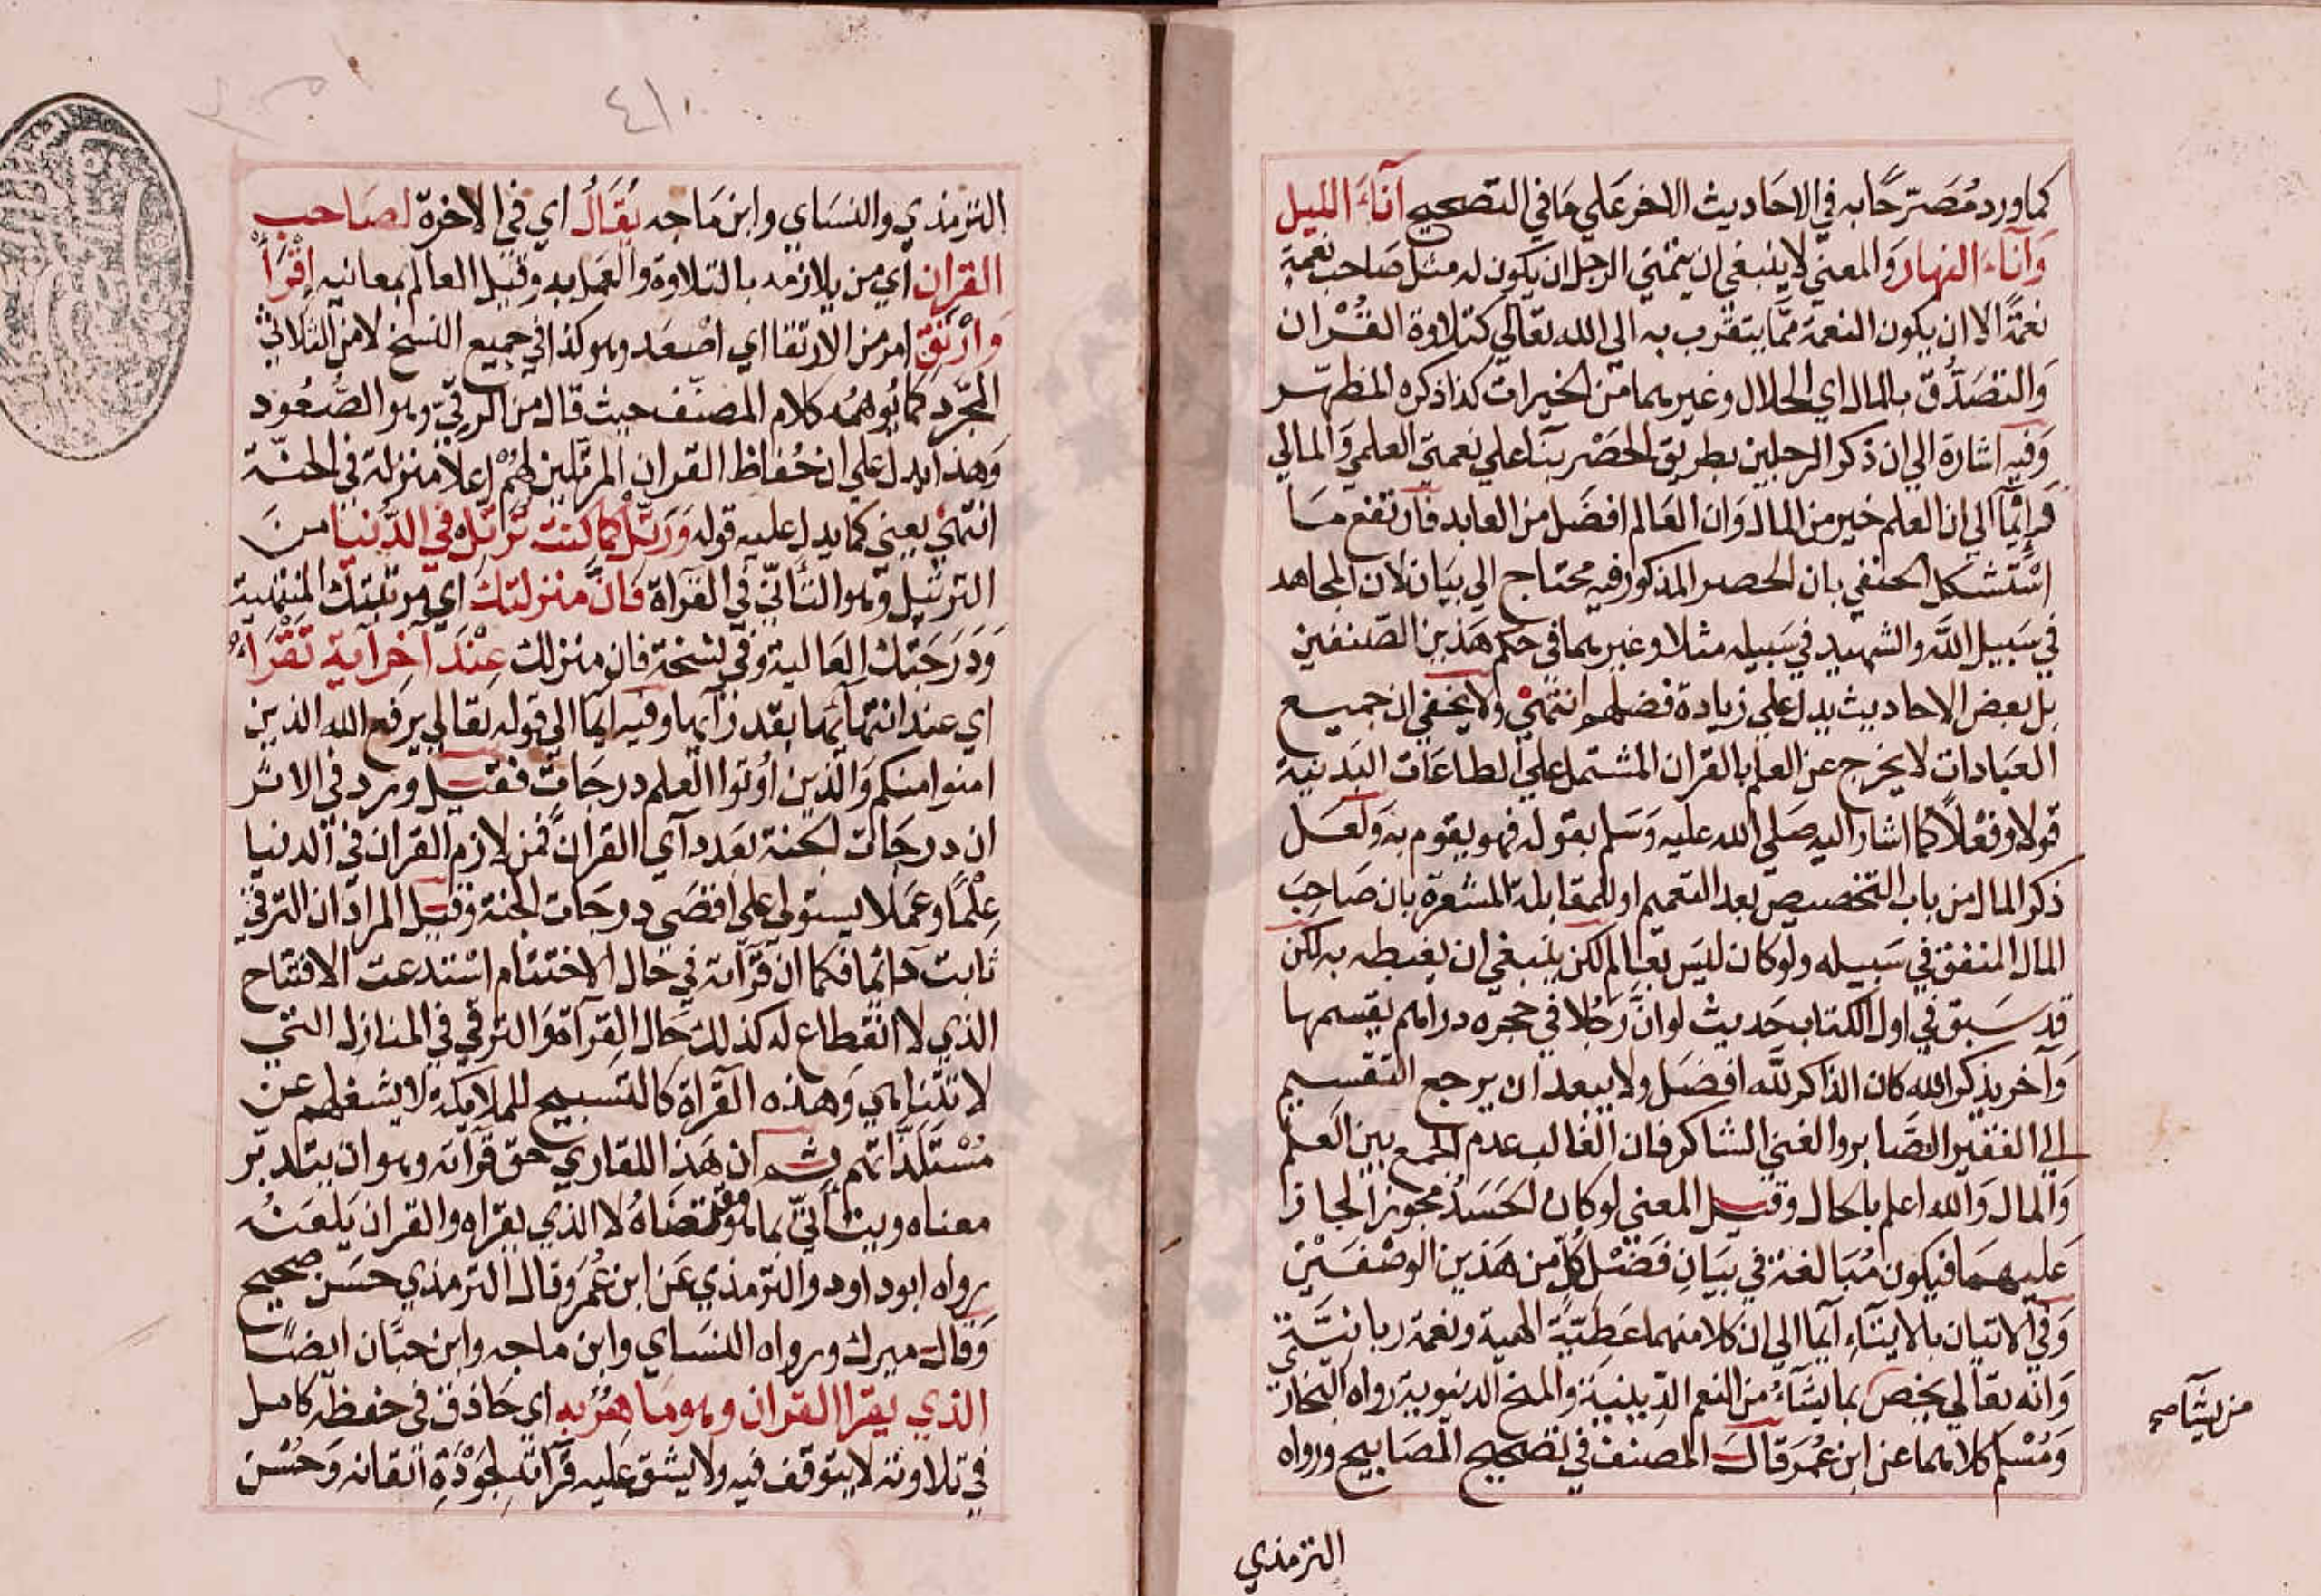 كما ورد مُصَرّحًا به في الاحَاديث الاخر عَلي مَا في التصحيح آناءَ الليل
وَآناء النهار وَالمعني لا ينبغي ان يتمني الرجل ان يكون له مثل صَاحب نعمة
نعمةً الا ان يكون النعمة ممّا يتقرب به الي الله تعَالي كتلاوة القُرْان
وَالتصَدُّق بالمال اي الحلال وغيرهما من الخيرات كذا ذكره المظهّر
وَفيه اشارة الي ان ذكر الرجلين بطريق الحَصْر بنَا علي نعمتي العلمي وَالمالي
فَايماً الي ان العلم خير من المال وَان العَالم افضَل من العابد فارتفع مَا
اسْتشكل الحنفي بان الحصر المذكور فيه محتاج الي بيَان لان المجاهد
في سَبيل اللَّه والشهيد في سَبيله مثلا وغيرهما في حكم هَذين الصّنفين
بل بعض الاحاديث يدل علي زيادة فضلهم انتهيْ ولا يخفي ان جميع
العبَادات لا يخرج عن العلم بالقران المشتمل علي الطاعَات البَدنية
قولا وفعْلاً كما اشار اليه صَلي الله عليه وَسَلم بقوله فهو يقوم به وَلعَل
ذكر المال من باب التخصيص بعد التعميم او للمقابلة المشعرة بان صَاحِبَ
المال المنفق في سَبيله ولو كان ليسَ بعَالم لكن ينبغي ان يغبطه به لكن
قد سَبق في اول الكتاب حَديث لو ان رَجُلا في حجره دراهم يقسمها
وَآخر يذكر الله كان الذاكر للَّه افضَل ولا يبعد ان يرجع التقسيم
الي الفقير الصَّابر والغني الشاكر فان الغالب عدم الجمع بين العلم
وَالمال وَالله اعلم بالحال وقيل المعني لو كان الحَسَدُ مجوزاً لجاز
عَليهمَا فيكون مُبَالغة في بيَانِ فَضْل كُلّ من هَذين الوصْفَيْن
وَفي الاتيان بالايتَآءِ ايما الي ان كلا منهما عَطيّة الهية ونعمة ربانيَّة
وَانه تعَالي يخص بما يشَآءُ من النعم الدِّينيَّة والمنح الدنيوية رواه البخاري
وَمُسْلم كلاهما عن ابن عُمَر قالَ المصنف في تصحيح المصَابيح ورواه
من يشآ صح
الترمذي
٤١٠
الترمذي والنسَاي وابن مَاجه يُقَالُ اي في الاخرة لصَاحب
القران اي من يلازمه بالتلاوة والعَمل به وقيل العَالم بمعَانيه اِقْرَأْ
وَارْتَقِ امر من الارتقا اي اصْعَد وهو كذا في جميع النسخ لا من الثلاثي
المجرّد كما يُوهمُه كلام المصنّف حيث قال من الرقيّ وهو الصُّعُود
وَهَذا يدل علي ان حُفاظ القران المرتلين لهُمْ اعلا منزلة في الجنّة
انتهيْ يعني كما يدل عليه قوله وَرَتّلْ كما كنت تُرَتّل في الدُّنيا من
الترتيل وهو التأنّي في القرَاة فَانّ منزلتك اي مرتبتك المنتهية
وَدَرَجَتك العَالية وَفي نسْخة فان منزلك عِنْدَ آخر آية تَقْرَأُ
اي عند انتهَائها بقدرَ آيها وفيه ايمَا الي قوله تعَالي يرفع الله الذين
امنوا منكم وَالذين اُوتوا العلم درجَات فقيل ورد في الاثر
ان درجَات الجنة بعَدد آي القرانِ فمن لازم القران في الدنيا
عِلْمًا وعَمَلا يستولي علي اقصَي درجَات الجنة وقيل المراد ان الترقي
ثابت دَائمًا فكما ان قرآته في حَال الاختتام اسْتدعت الافتتاح
الذي لا انقطاع له كذلك حَال القرآة وَالترقي في المنازل التي
لا تتنَاهي وَهذه القرَاة كالتسبيح للملائكة لا يشغلهم عن
مُسْتلَذّاتهم ثم ان هَذا للقاري حَق قرآته وهو ان يتدبّر
معناه ويتأنيّ بما هو مقتضَاهُ لا الذي يقرَاه والقران يَلعَنُه
رواه ابو داود والترمذي عَن ابن عُمَر وَقال الترمذي حسَن صحيح
وَقَال ميرك ورواه النسَاي وابن ماجه وابن حبَّان ايضًا
الذي يقرا القران وهو مَاهِرٌ به اي حَاذق في حفظه كامل
في تلاوته لا يتوقف فيه ولا يشق عَليه قرآته لجَوْدَةِ اتقانه وَحُسْن